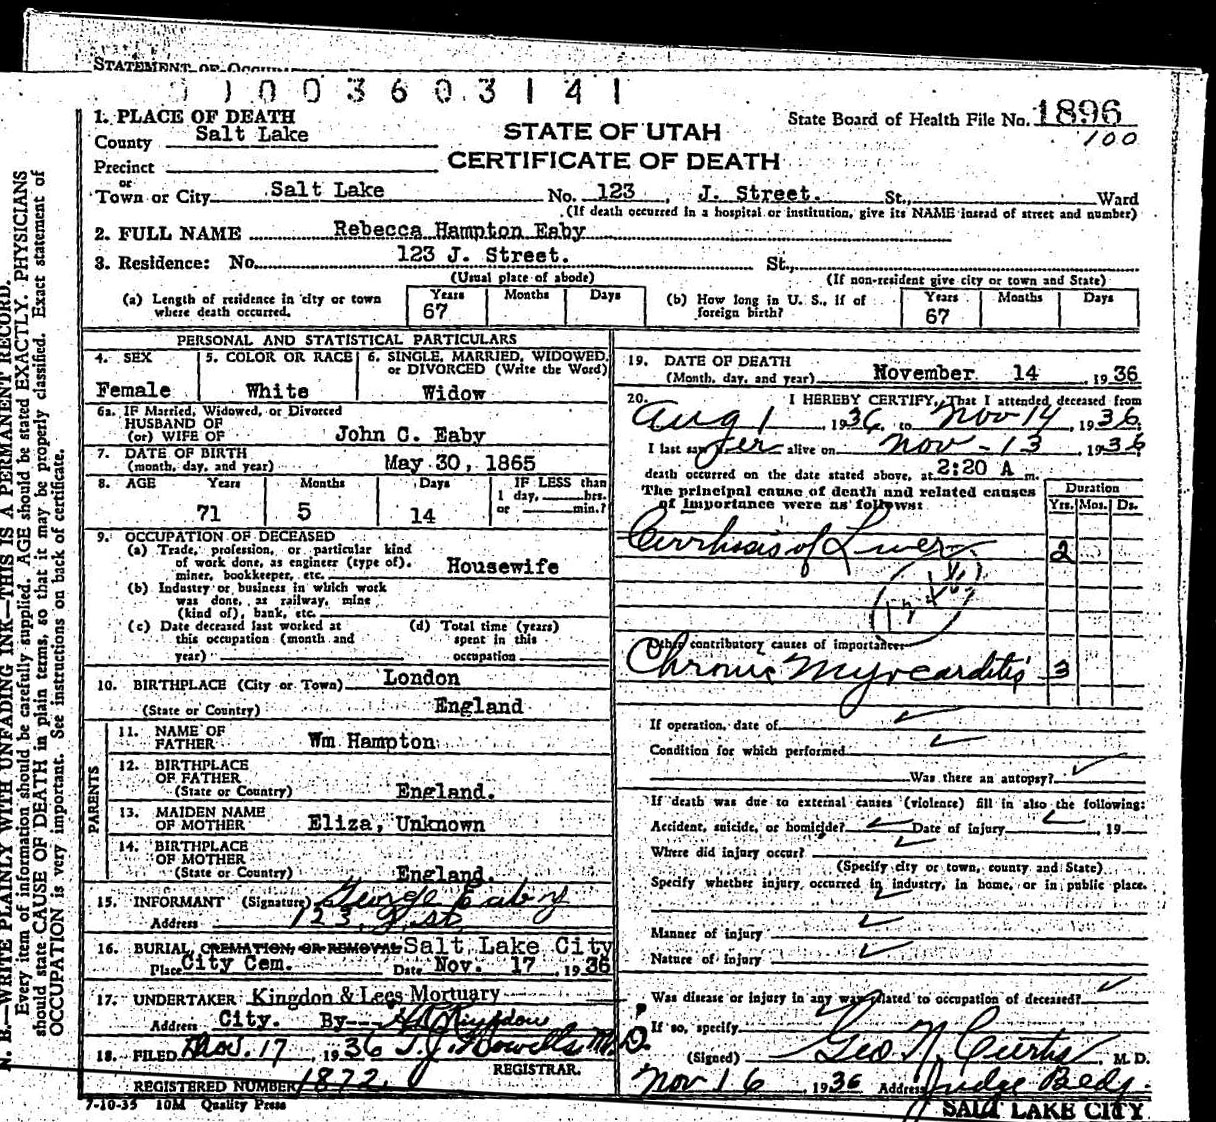 STATEMENT OF OCCUP
0 1 0 0 3 6 0 3 1 4 1
1. PLACE OF DEATH
County Salt Lake
STATE OF UTAH
CERTIFICATE OF DEATH
State Board of Health File No. 1896
100
Precinct
or
Town or City Salt Lake No. 123 J. Street. St., Ward
(If death occurred in a hospital or institution, give its NAME instead of street and number)
2. FULL NAME Rebecca Hampton Eaby
3. Residence: No. 123 J. Street. St.,
(Usual place of abode) (If non-resident give city or town and State)
(a) Length of residence in city or town where death occurred. Years 67 Months Days
(b) How long in U. S., if of foreign birth? Years 67 Months Days
PERSONAL AND STATISTICAL PARTICULARS
4. SEX Female
5. COLOR OR RACE White
6. SINGLE, MARRIED, WIDOWED, or DIVORCED (Write the Word) Widow
6a. IF Married, Widowed, or Divorced
HUSBAND OF
(or) WIFE OF John C. Eaby
7. DATE OF BIRTH
(month, day, and year) May 30, 1865
8. AGE Years 71 Months 5 Days 14 IF LESS than 1 day, hrs. or min.?
9. OCCUPATION OF DECEASED
(a) Trade, profession, or particular kind
of work done, as engineer (type of),
miner, bookkeeper, etc. Housewife
(b) Industry or business in which work
was done, as railway, mine
(kind of), bank, etc.
(c) Date deceased last worked at
this occupation (month and
year)
(d) Total time (years)
spent in this
occupation
10. BIRTHPLACE (City or Town) London
(State or Country) England
PARENTS
11. NAME OF FATHER Wm Hampton
12. BIRTHPLACE OF FATHER
(State or Country) England.
13. MAIDEN NAME OF MOTHER Eliza, Unknown
14. BIRTHPLACE OF MOTHER
(State or Country) England.
15. INFORMANT (Signature) George Eaby
Address 123 J. St.
16. BURIAL, CREMATION, OR REMOVAL Salt Lake City
Place City Cem. Date Nov. 17, 1936
17. UNDERTAKER Kingdon & Lees Mortuary
Address City. By-- Kingdon
18. FILED Nov. 17, 1936 T. J. Howells M. D.
REGISTRAR.
REGISTERED NUMBER 1872
7-10-35 10M Quality Press
19. DATE OF DEATH
(Month, day, and year) November 14, 1936
20. I HEREBY CERTIFY, That I attended deceased from
Aug 1 1936, to Nov 14, 1936
I last saw her alive on Nov - 13 1936
death occurred on the date stated above, at 2:20 A m.
The principal cause of death and related causes
of importance were as follows:
Duration
Yrs. Mos. Ds.
Cirrhosis of Liver 2
Other contributory causes of importance
Chronic Myocarditis 3
If operation, date of
Condition for which performed
Was there an autopsy?
If death was due to external causes (violence) fill in also the following:
Accident, suicide, or homicide? Date of injury 19
Where did injury occur?
(Specify city or town, county and State)
Specify whether injury occurred in industry, in home, or in public place.
Manner of injury
Nature of injury
Was disease or injury in any way related to occupation of deceased?
If so, specify
(Signed) Geo N. Curtis, M. D.
Nov 16, 1936 Address Judge Bldg.
SALT LAKE CITY
N. B.—WRITE PLAINLY WITH UNFADING INK—THIS IS A PERMANENT RECORD.
Every item of information should be carefully supplied. AGE should be stated EXACTLY. PHYSICIANS
should state CAUSE OF DEATH in plain terms, so that it may be properly classified. Exact statement of
OCCUPATION is very important. See instructions on back of certificate.